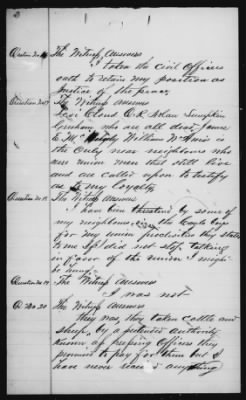 Question No 16 The Witness Answers
I taken the civil officers
oath to retain my position as
Justice of the peace
Question No 17 The Witness Answers
Levi Cloud
who are all dead James
William
the Only near neighbors who
were union men that still live
and are called upon to testify
as to my loyalty
Question No 18 The Witness Answers
I have been threatend by some of
my neighbors
for my union proclivities they stated
to me if I did not stop talking
in favor of the union I might
be hung
Question No 19 The Witness Answers
I was not
Q No 20 The Witness Answers
they was, they taken cattle and
sheep, by a pretended authority
known as pressing officers they
promised to pay for them but I
have never received anything